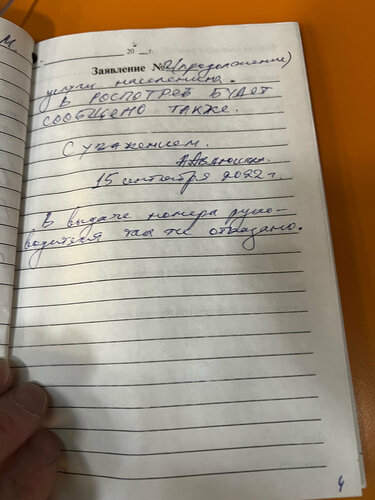 20__г.
Заявление № 2 (продолжение)
услуги населению.
В РОСПОТРЕБ БУДЕТ
СООБЩЕНО ТАКЖЕ.
С уважением.
15 сентября 2022 г.
В выдаче номера руко-
водителя так же отказано.
4